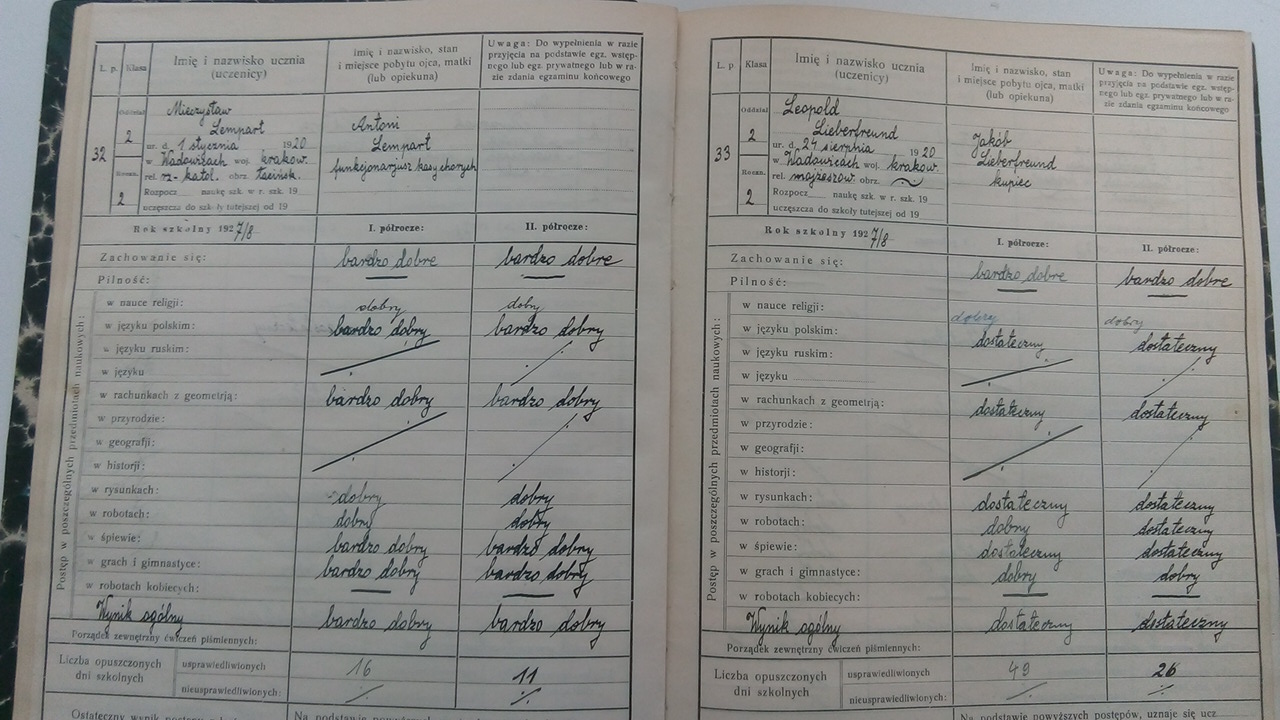 L. p.
Klasa
Imię i nazwisko ucznia
(uczenicy)
Imię i nazwisko, stan
i miejsce pobytu ojca, matki
(lub opiekuna)
Uwaga: Do wypełnienia w razie
przyjęcia na podstawie egz. wstęp-
nego lub egz. prywatnego lub w ra-
zie zdania egzaminu końcowego
32
Oddział
2
Rozsn.
2
Mieczysław
Lempart
ur. d. 1 stycznia 1920
w Wadowicach woj. krakow.
rel. rz-katol. obrz. łacińsk.
Rozpocz naukę szk. w r. szk. 19
uczęszcza do szkoły tutejszej od 19
Antoni
Lempart
funkcjonarjusz kasy chorych
Rok szkolny 1927/8
I. półrocze:
II. półrocze:
Zachowanie się: bardzo dobre bardzo dobre
Pilność:
Postęp w poszczególnych przedmiotach naukowych:
w nauce religji: dobry dobry
w języku polskim: bardzo dobry bardzo dobry
w języku ruskim:
w języku
w rachunkach z geometrją: bardzo dobry bardzo dobry
w przyrodzie:
w geografji:
w historji:
w rysunkach: dobry dobry
w robotach: dobry dobry
w śpiewie: bardzo dobry bardzo dobry
w grach i gimnastyce: bardzo dobry bardzo dobry
w robotach kobiecych:
Wynik ogólny bardzo dobry bardzo dobry
Porządek zewnętrzny ćwiczeń piśmiennych:
Liczba opuszczonych
dni szkolnych
usprawiedliwionych 16 11
nieusprawiedliwionych:
Na podstawie
L. p.
Klasa
Imię i nazwisko ucznia
(uczenicy)
Imię i nazwisko, stan
i miejsce pobytu ojca, matki
(lub opiekuna)
Uwaga: Do wypełnienia w razie
przyjęcia na podstawie egz. wstęp-
nego lub egz. prywatnego lub w ra-
zie zdania egzaminu końcowego
33
Oddział
2
Rozsn.
2
Leopold
Lieberfreund
ur. d. 24 sierpnia 1920
w Wadowicach woj. krakow.
rel. mojżeszow. obrz.
Rozpocz naukę szk. w r. szk. 19
uczęszcza do szkoły tutejszej od 19
Jakób
Lieberfreund
kupiec
Rok szkolny 1927/8
I. półrocze:
II. półrocze:
Zachowanie się: bardzo dobre bardzo dobre
Pilność:
Postęp w poszczególnych przedmiotach naukowych:
w nauce religji: dobry dobry
w języku polskim: dostateczny dostateczny
w języku ruskim:
w języku
w rachunkach z geometrją: dostateczny dostateczny
w przyrodzie:
w geografji:
w historji:
w rysunkach: dostateczny dostateczny
w robotach: dobry dostateczny
w śpiewie: dostateczny dostateczny
w grach i gimnastyce: dobry dobry
w robotach kobiecych:
Wynik ogólny dostateczny dostateczny
Porządek zewnętrzny ćwiczeń piśmiennych:
Liczba opuszczonych
dni szkolnych
usprawiedliwionych 49 26
nieusprawiedliwionych:
Na podstawie powyższych postępów, uznaje się ucz